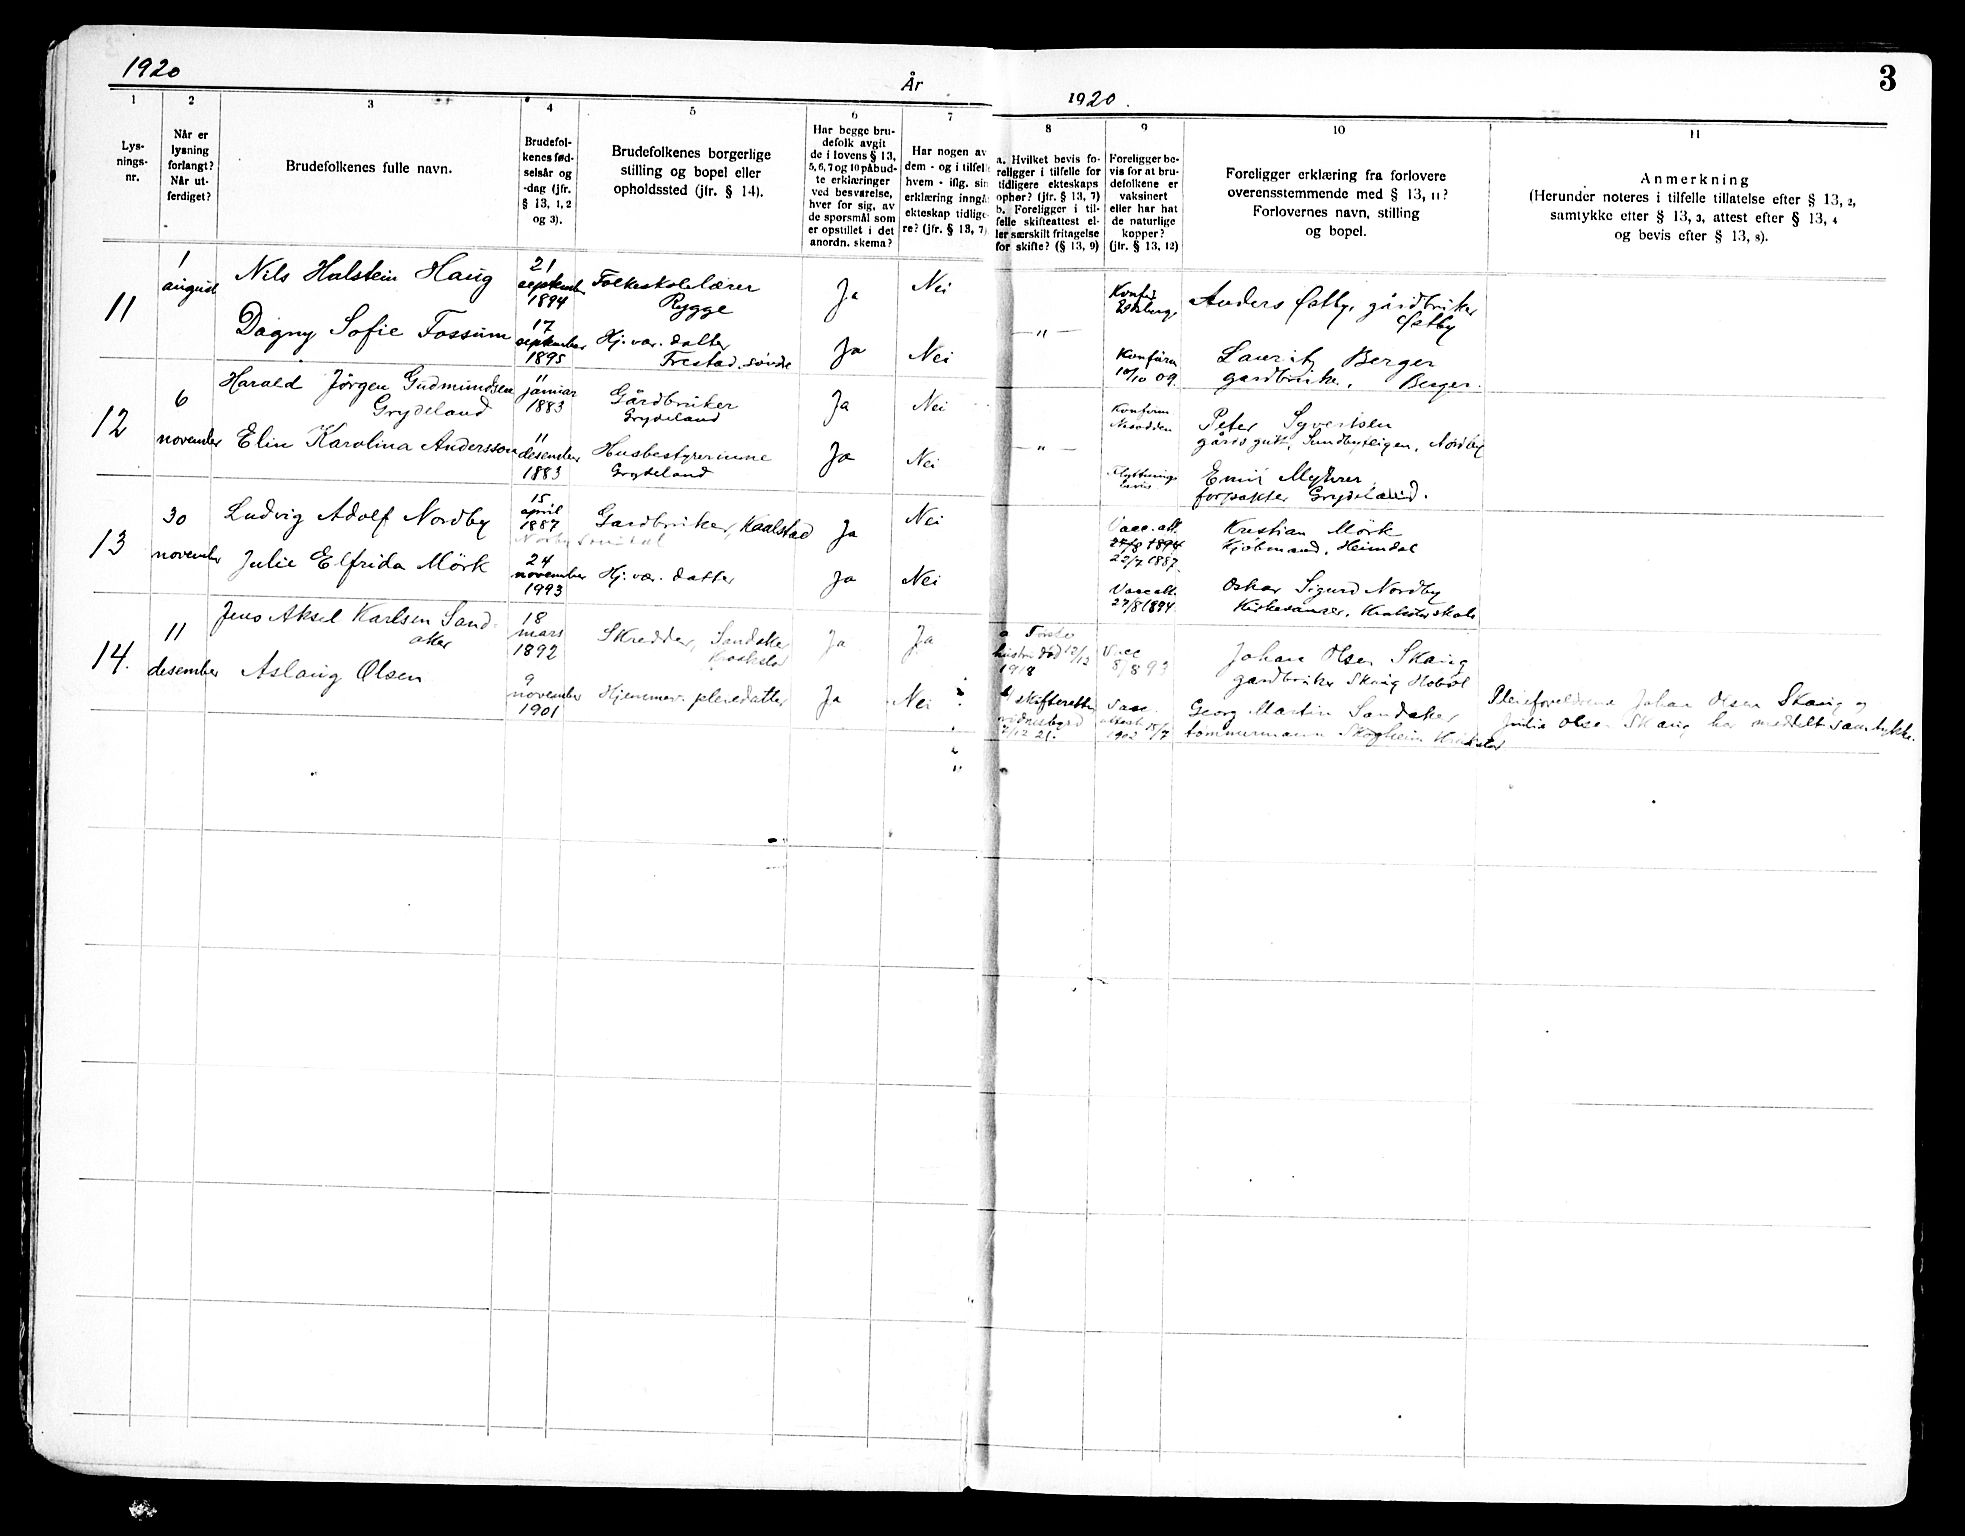 1920
År
1920.
3
1 2 3 4 5 6 7 8 9 10 11
Lys-
nings-
nr.
Når er
lysning
forlangt?
Når ut-
ferdiget?
Brudefolkenes fulle navn.
Brudefol-
kenes fød-
selsår og
-dag (jfr.
§ 13, 1, 2
og 3).
Brudefolkenes borgerlige
stilling og bopel eller
opholdssted (jfr. § 14).
Har begge bru-
defolk avgit
de i lovens § 13,
5, 6, 7 og 10 påbud-
te erklæringer
ved besvarelse,
hver for sig, av
de spørsmål som
er opstillet i det
anordn. skema?
Har nogen av
dem - og i tilfelle
hvem - iflg. sin
erklæring inngå
ekteskap tidlige-
re? (jfr. § 13, 7)
a. Hvilket bevis fo-
religger i tilfelle for
tidligere ekteskaps
ophør? (jfr. § 13, 7)
b. Foreligger i til-
felle skifteattest el-
ler særskilt fritagelse
for skifte? (§ 13, 9)
Foreligger be-
vis for at bru-
defolkene er
vaksinert
eller har hat
de naturlige
kopper?
(jfr. § 13, 12)
Foreligger erklæring fra forlovere
overensstemmende med § 13, 11?
Forlovernes navn, stilling
og bopel.
Anmerkning
(Herunder noteres i tilfelle tillatelse efter § 13, 2,
samtykke etter § 13, 3, attest efter § 13, 4
og bevis efter § 13, 8).
11
1
august
Nils Halstein Haug
21
september
1894
Folkeskolelærer
Rygge
Ja
Nei
Konfir
Anders Østby, gårdbruker
Østby
Dagny Sofie Fossum
17
september
1895
Hj. vær. datter
Frestad, søndre
Ja
Nei
— " —
Konfirm
10/10 09.
Laurits Berger
gardbruker, Berger.
12
6
november
Harald Jørgen Gudmundsen
Grydeland
11
januar
1883
Gårdbruker
Grydeland
Ja
Nei
Konfirm
Peter Syvertsen
gårdsgutt, Sundbyteigen, Nordby
Elin Karolina Andersson
11
desember
1883
Husbestyrerinne
Grydeland
Ja
Nei
— " —
Flyttnings
bevis
Emil Myhrer
forpakter Grydeland.
13
30
november
Ludvig Adolf Nordby
15
april
1887
Gardbruker, Kaalstad
Ja
Nei
Vacc. att.
27/8 1894
22/7 1887.
Kristian Mörk
Kjøbmand, Heimdal
Julie Elfrida Mörk
24
november
1993
Hj. vær. datter
Ja
Nei
Vacc att.
27/8 1894.
Oskar Sigurd Nordby
Kirkesanger,
14.
11
desember
Jens Aksel Karlsen Sand-
aker
18
mars
1892
Skredder, Sandaker
Kraakstad
Ja
Ja
a Første
hustru død 12/12
1918
Vacc
8/8 93
Johan Olsen Skaug
gardbruker Skaug Hobøl
Aslaug Olsen
9
november
1901
Hjemmev. pleiedatter
Ja
Nei
b/ skifteretten
vidnesbyrd
7/12 21.
Vacc.
attest 15/7
1902
Georg Martin Sandaker
tømmermann Skogheim Kråkstad
Pleieforeldrene Johan Olsen Skaug og
Julia Olsen Skaug har meddelt samtykke.